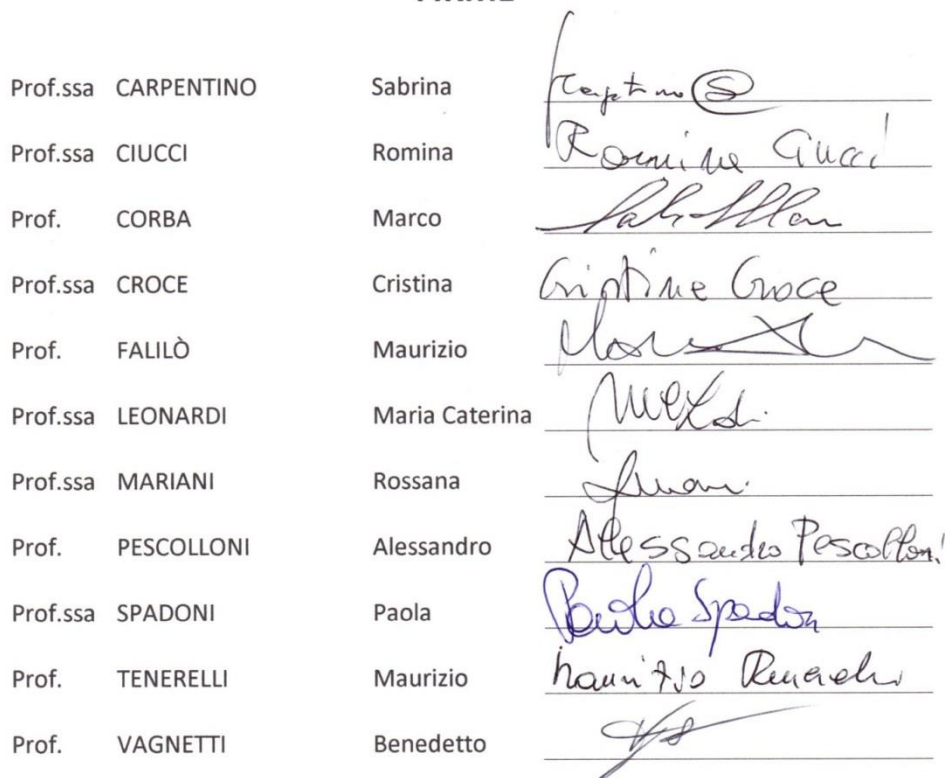 Prof.ssa CARPENTINO Sabrina
Prof.ssa CIUCCI Romina Romina Ciucci
Prof. CORBA Marco
Prof.ssa CROCE Cristina Cristina Croce
Prof. FALILÒ Maurizio
Prof.ssa LEONARDI Maria Caterina
Prof.ssa MARIANI Rossana
Prof. PESCOLLONI Alessandro Alessandro Pescolloni
Prof.ssa SPADONI Paola Paola Spadoni
Prof. TENERELLI Maurizio Maurizio
Prof. VAGNETTI Benedetto